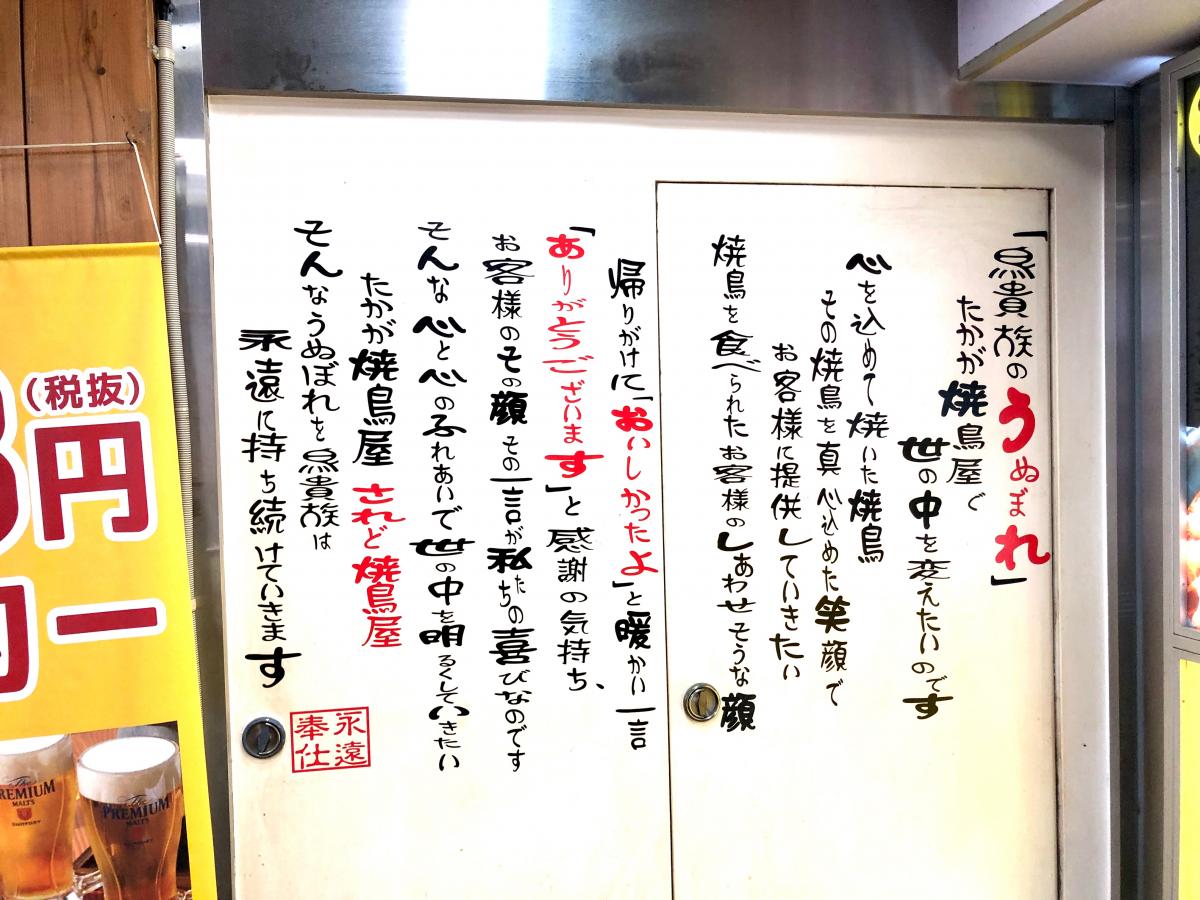 「鳥貴族のうぬぼれ」
たかが焼鳥屋で
世の中を変えたいのです
心を込めて焼いた焼鳥
その焼鳥を真心込めた笑顔で
お客様に提供していきたい
焼鳥を食べられたお客様のしあわせそうな顔
帰りがけに「おいしかったよ」と暖かい一言
「ありがとうございます」と感謝の気持ち、
お客様のその顔その一言が私たちの喜びなのです
そんな心と心のふれあいで世の中を明るくしていきたい
たかが焼鳥屋 されど焼鳥屋
そんなうぬぼれを鳥貴族は
永遠に持ち続けていきます
永遠
奉仕
(税抜)
円
一
The
PREMIUM
MALT'S
SUNTORY
The
PREMIUM
MALT'S